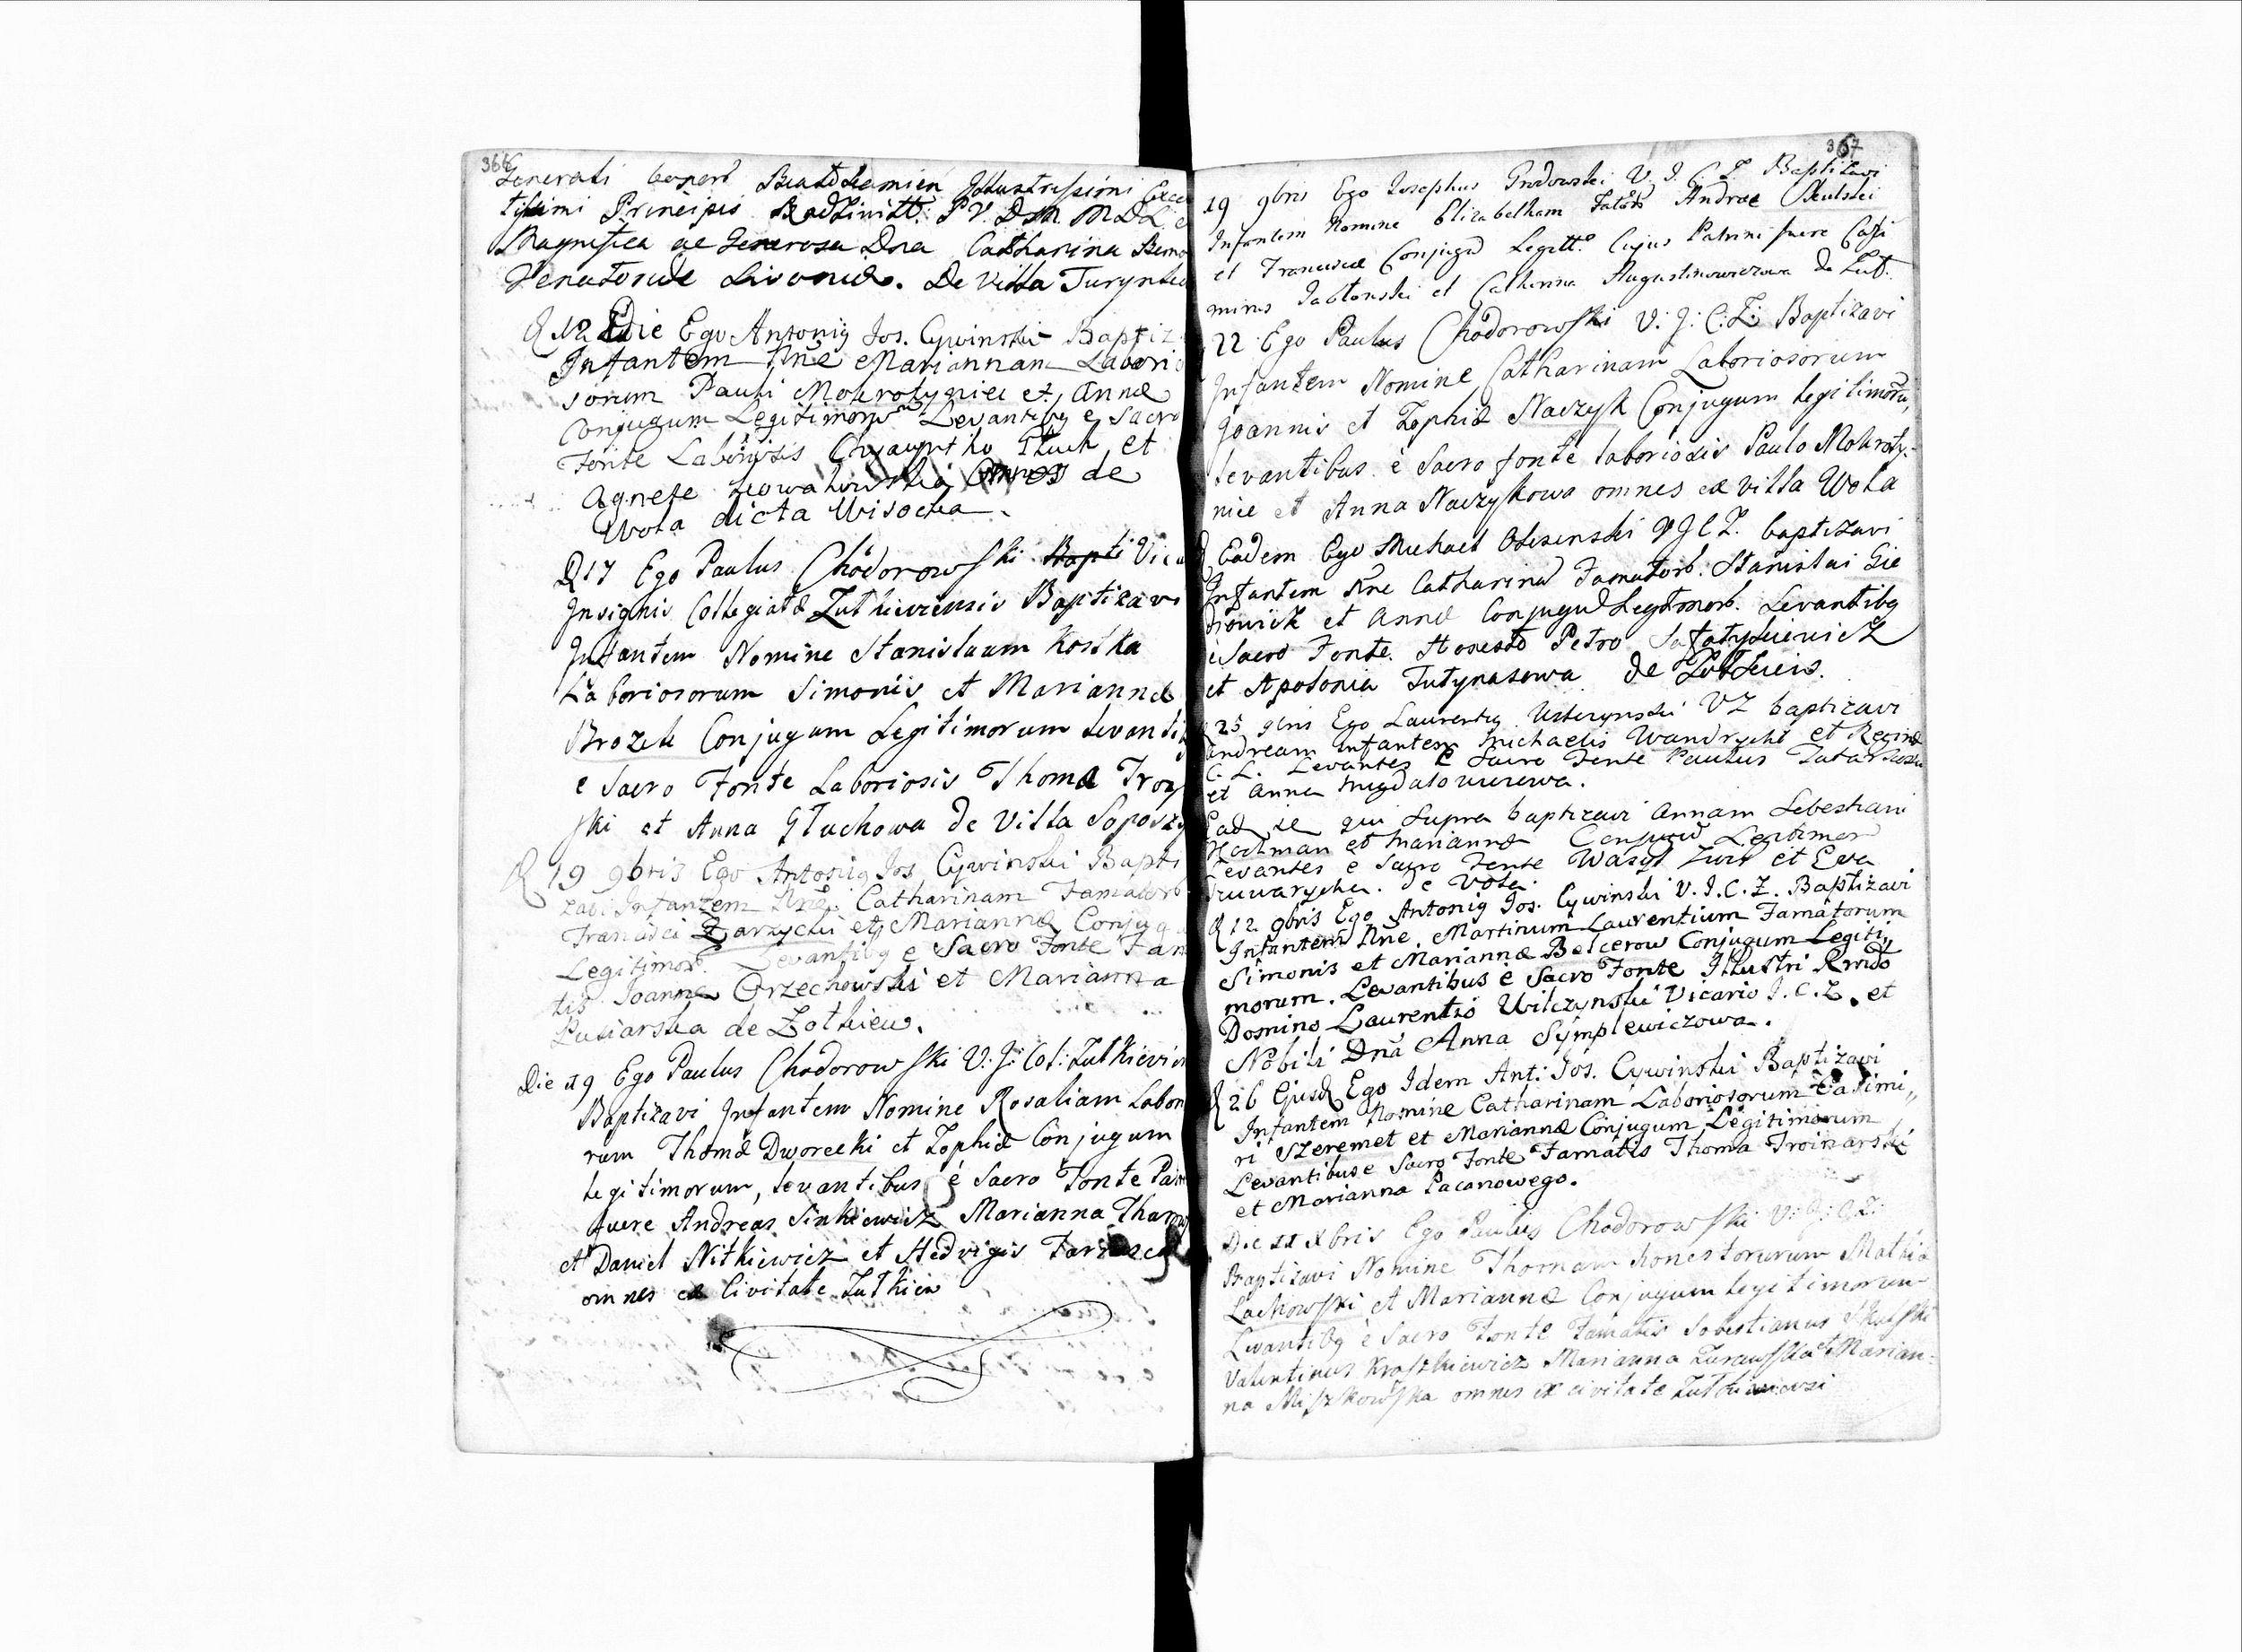 366
Generali
tissimi Principis Radziwill: P. V. D. M. M D L
Magnifica ac Generosa Dna Catharina
De Villa Turynka
12 Die Ego Antonig Jos. Cywinski Baptiz
Infantem Nne Mariannam Laborio
sorum Pauli Mokrotynice et Annæ
Conjugum Legitimor Levantibg e Sacro
Fonte Laboriosis Chwayntko Tluch et
Agnete omnes de
Wola dicta Wisocka.
D 17 Ego Paulus Chodorowski Bapti Vica
Insignis Collegiatæ Zutkieviensis Baptizavi
Infantem Nomine Stanislaum Kostka
Laboriosorum Simonis et Mariannæ
Brozek Conjugum Legitimorum levantib
e Sacro Fonte Laboriosis Thoma Troy
ski et Anna Gluchowa de Villa Soposzy
19 9bris Ego Antonig Jos Cywinski Bapti
zavi Infantem Nne Catharinam Famator
Francisci Zarzycki et Mariannæ Conjug
Legitimor. Levantibg e Sacro Fonte Fam
tis Joanne Orzechowski et Marianna
Pusiarska de Zolkiew.
Die 19 Ego Paulus Chodorowski V: J: Col: Zutkievien
Baptizavi Infantem Nomine Rosaliam Labori
rum Thomæ Dworecki et Zophiæ Conjugum
legitimorum, levantibus è Sacro Fonte
fuere Andreas Sinkiewicz Marianna
et Daniel Nitkiewicz et Hedvigis
omnes ex Civitate Zutkiew
367
19 9bris Ego Josephus Grodowski V. I. C. Z. Baptizavi
Infantem Nomine Elizabetham Andreæ
et Franciscæ Conjugu Legitt. Cujus Patrini fuere Casi
mirus Jablonski et Catherina Augustinowiczowa de
22 Ego Paulus Chodorowski V: J: C: Z: Baptizavi
Infantem Nomine Catharinam Laboriosorum
Joannis et Zophiæ Naczyk Conjugum legitimoru,
levantibus è Sacro fonte laboriosis Paulo Mokroty-
nice et Anna Naczykowa omnes ex villa Wola
Eadem Ego Michael Olesinski V J C Z. baptizavi
Infantem Nne Catharina Famator. Stanislai Gie
et Annæ Conjugu Legitmor. Levantibg
e Sacro Fonte. Honesto Petro
et Apolonia Tutynasowa de
25 9bris Ego Laurentig V Z baptizavi
Andream Infantem Michaelis Wandrycht et Reginæ
C. L. Levantes è Sacro Fonte Paulus
et Anna Migdalowiczowa.
Ead ie qui Supra baptizavi Annam Sebestiani
Hoclman et Mariannæ Conjugu Legitimor
Levantes è Sacro Fonte Wasyl et Eva
de
12 9bris Ego Antonig Jos. Cywinski V. I. C. Z. Baptizavi
Infantem Nne. Martinum Laurentium Famatorum
Simonis et Mariannæ Belcerow Conjugum Legiti,,
morum. Levantibus è Sacro Fonte Illustri Rvndo
Domino Laurentio Wilczynski Vicario I. C. Z. et
Nobili Dna Anna Symplewiczowa.
26 Ejusd Ego Idem Ant: Jos. Cywinski Baptizavi
Infantem Nomine Catharinam Laboriosorum Casimi,,
ri Szeremet et Mariannæ Conjugum Legitimorum
Levantibus e Sacro Fonte Famatis Thoma Troinarski
et Marianna Pacanowego.
Die 11 Xbris Ego Paulus Chodorowski V: J: C: Z:
Baptizavi Nomine Thomam honestorum Mathiæ
Lachowski et Mariannæ Conjugum legitimorum
Levantibg è Sacro Fonte famatis Sobestianus
Valentinus Kroszkiewicz Marianna Zurawska et Marian=
na Miszkowska omnes ex civitate